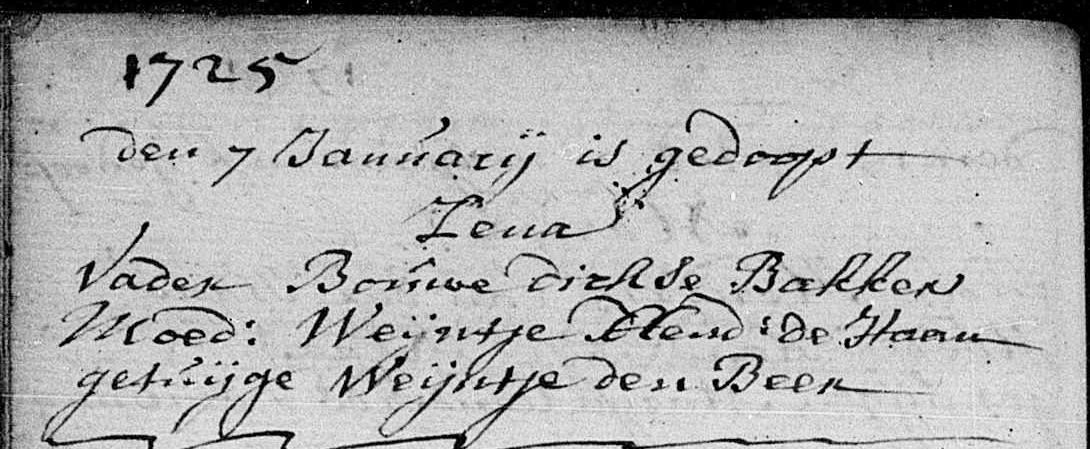 1725
den 7 Januarij is gedoopt
Lena
Vader Bouwe dirkse Bakker
Moed: Weijntje Hend: de Haan
getuijge Weijntje den Beer